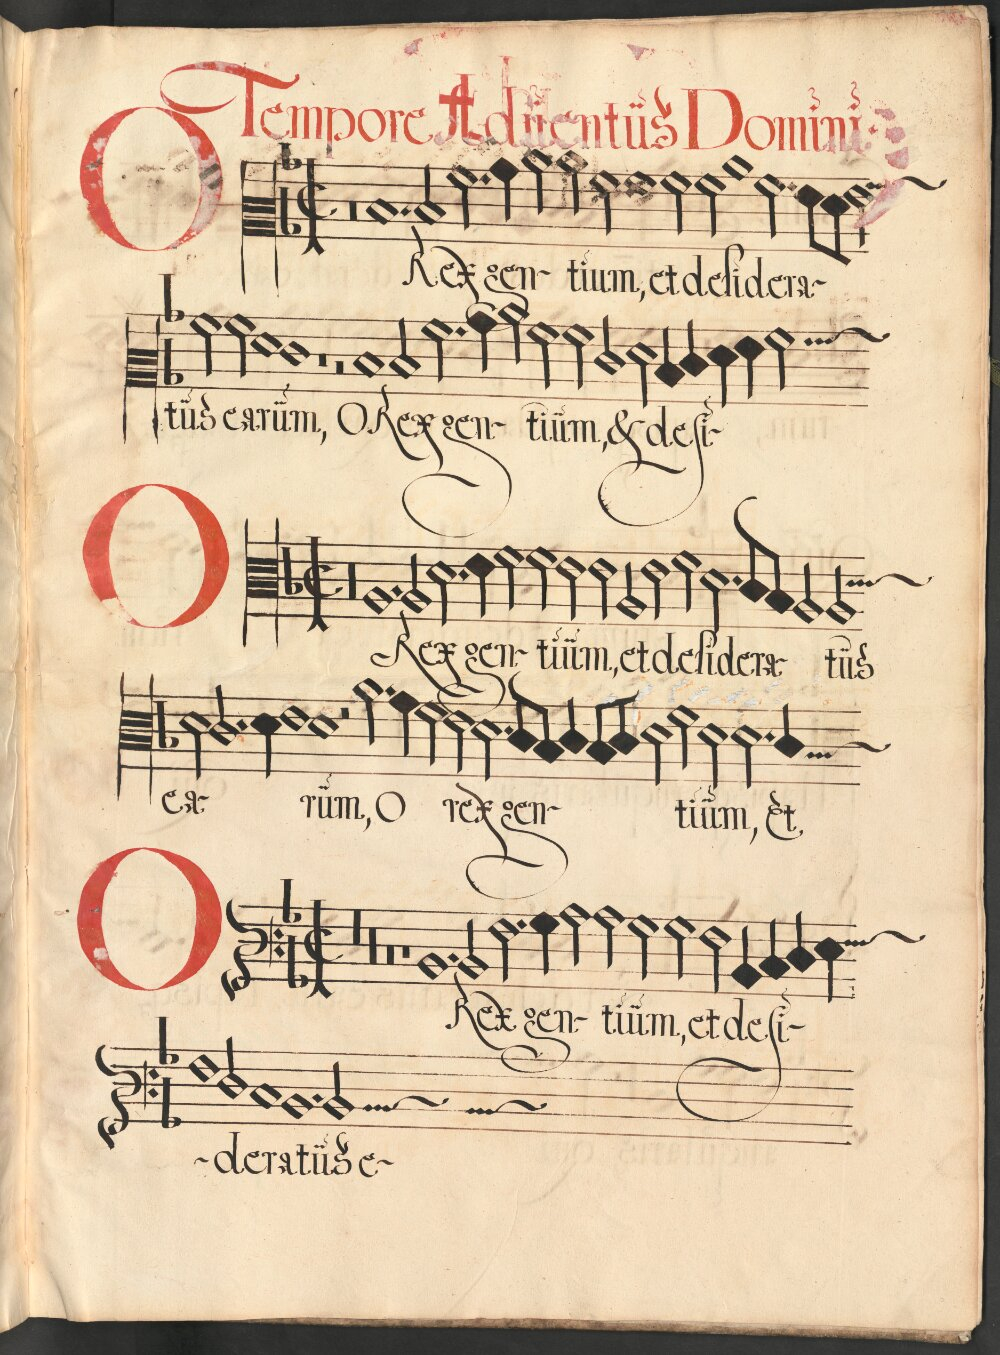 Tempore Aduentüs Domini.
O Rex gen- tium, et desidera-
tüs earüm, O Rex gen- tiüm, & desi-
O Rex gen- tiüm, et desidera- tüs
ea- rüm, O rex gen- tiüm, Et
O Rex gen- tiüm, et desi-
-deratüs e-